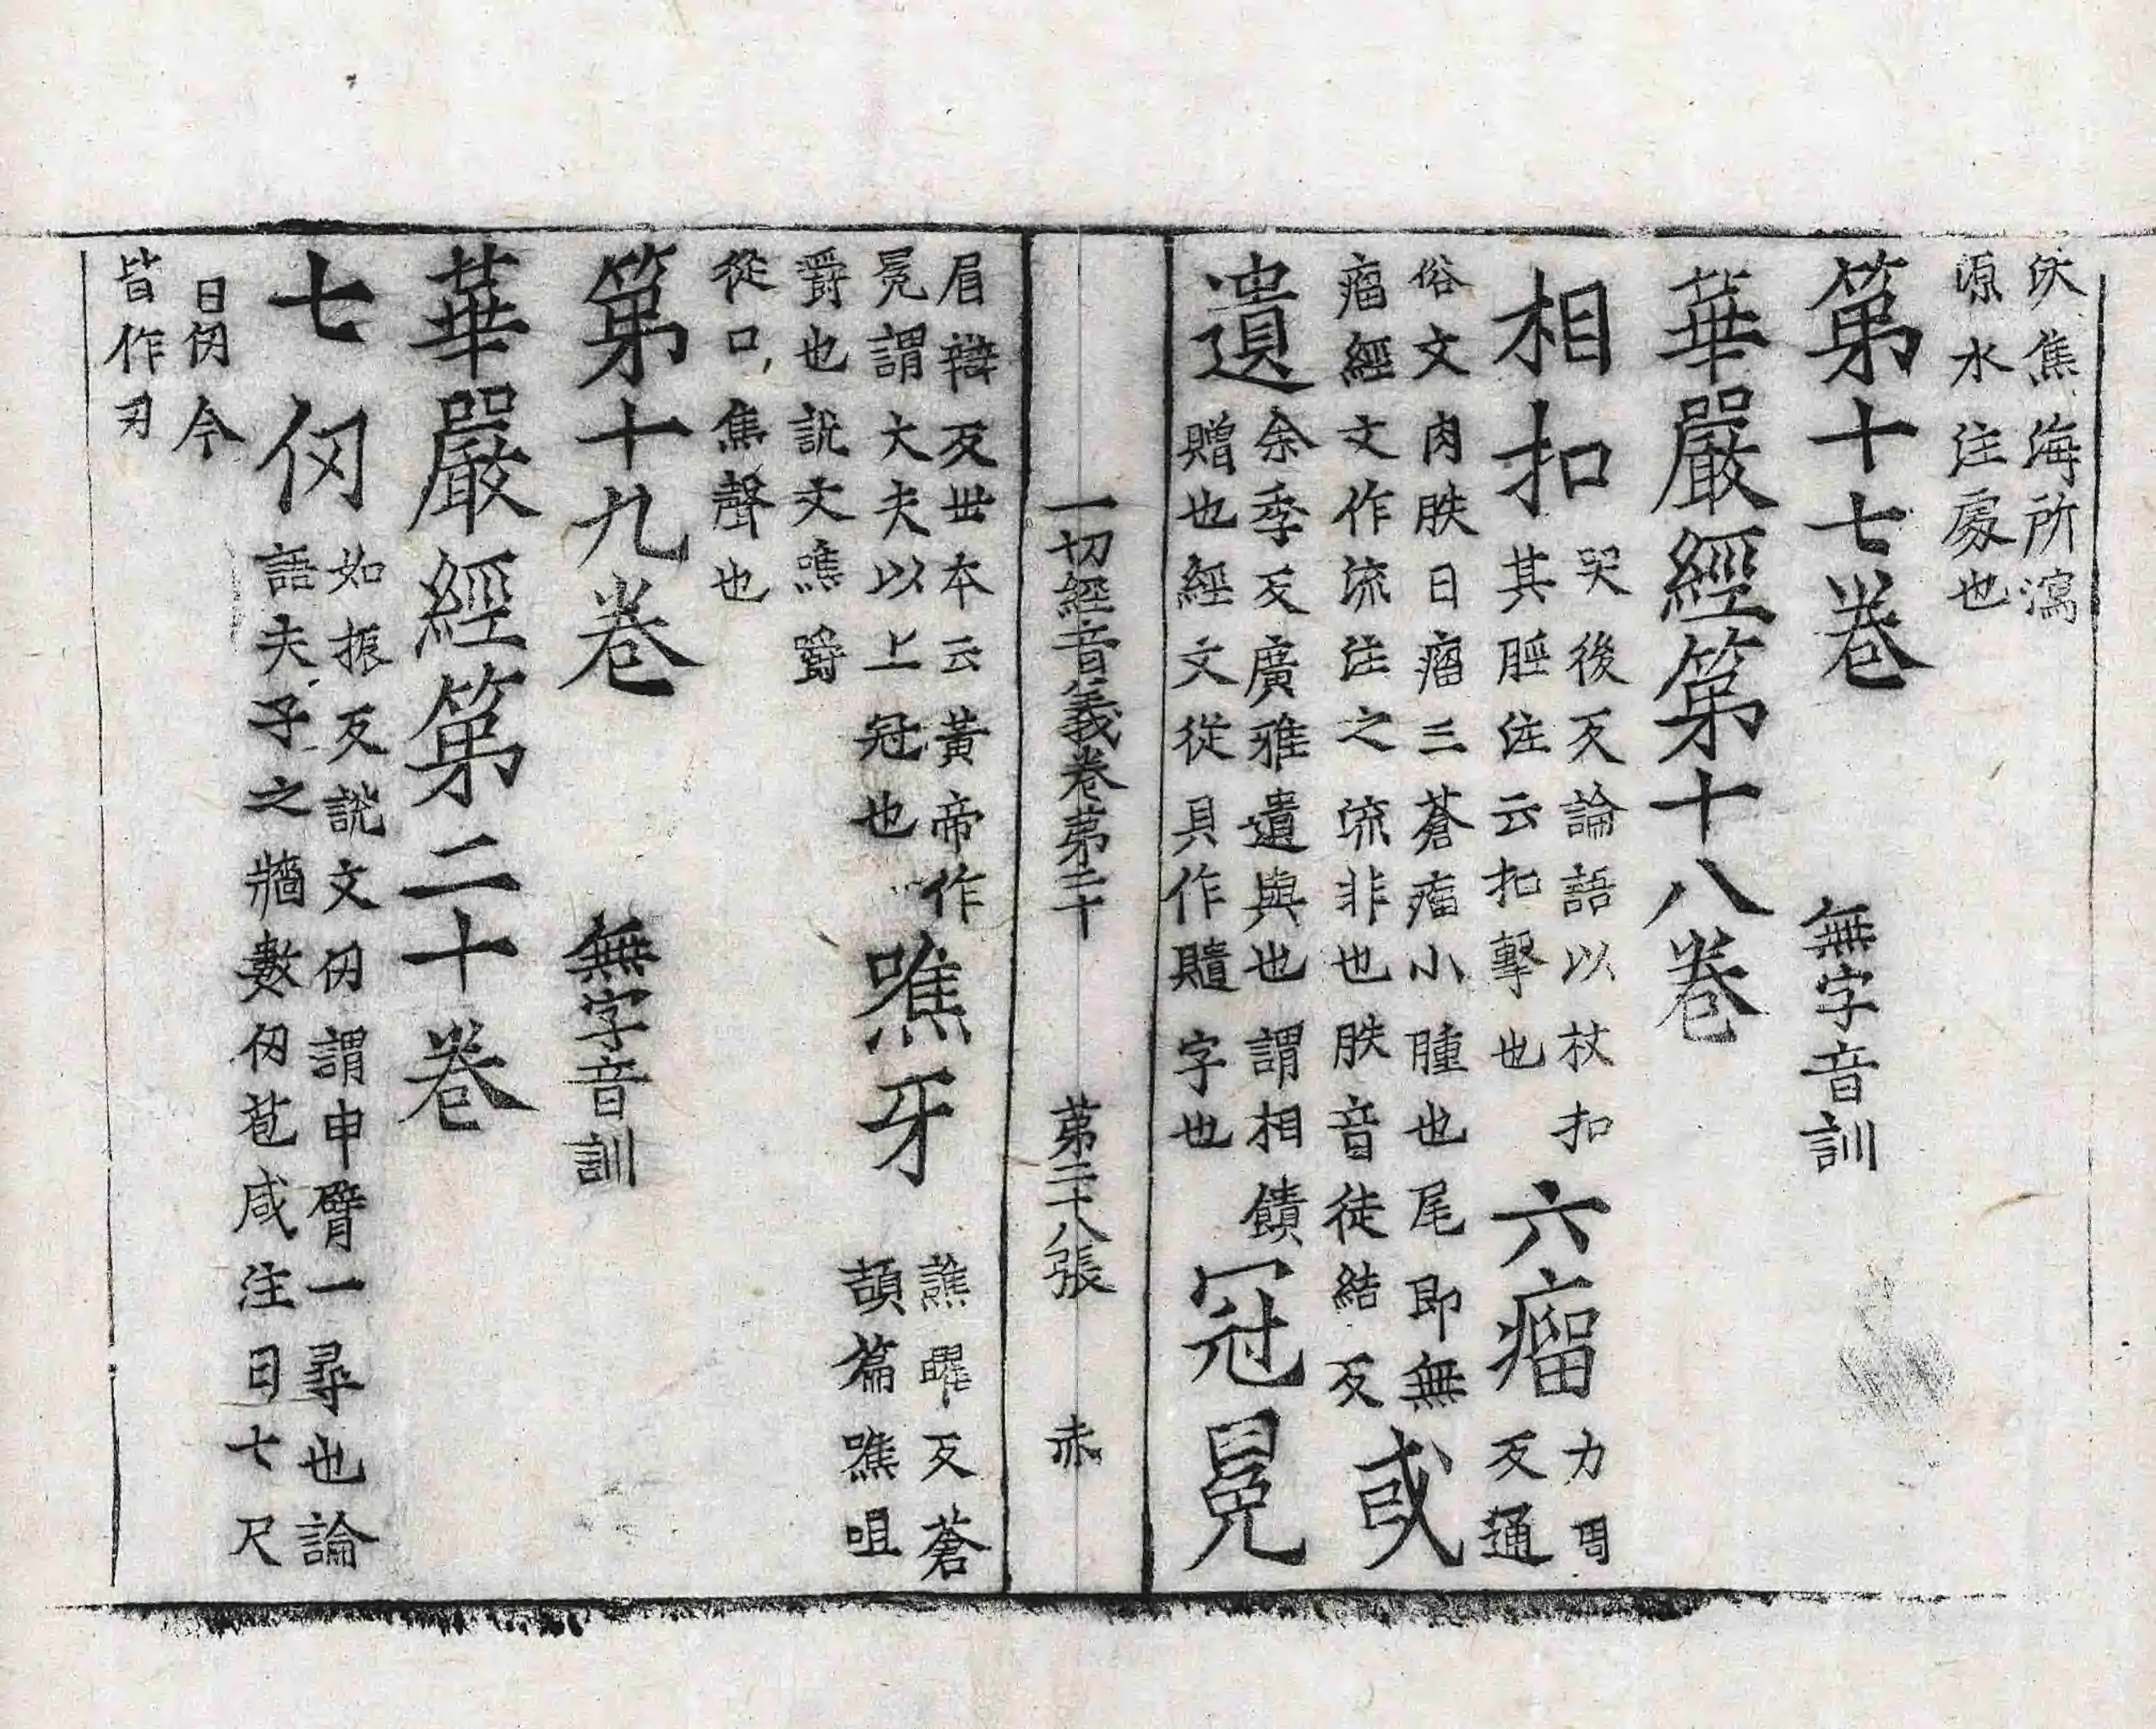 沃焦海所瀉
源水注處也
第十七卷 無字音訓
華嚴經第十八卷
相扣 哭後反論語以杖扣
其脛注云扣擊也
六瘤 力周
反通
俗文肉胅曰瘤三蒼瘤小腫也尾即無
瘤經文作流注之流非也胅音徒結反
或
遺 余季反廣雅遺與也謂相饋
贈也經文從貝作䞇字也
冠冕
一切經音義卷第二十 第二十八張 赤
眉辯反世本云黃帝作
冕謂大夫以上冠也
噍牙 譙曜反蒼
頡篇噍咀
嚼也說文噍嚼
從口焦聲也
第十九卷 無字音訓
華嚴經第二十卷
七仞 如振反說文仞謂申臂一尋也論
語夫子之牆數仞苞咸注曰七尺
曰仞今
皆作刃